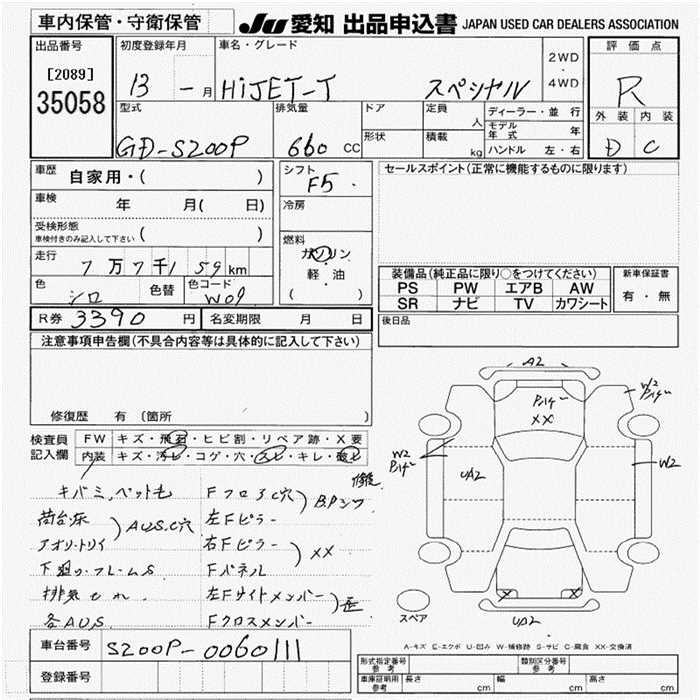 車内保管・守衛保管
JU 愛知 出品申込書 JAPAN USED CAR DEALERS ASSOCIATION
出品番号
[2089]
35058
初度登録年月
13 － 月
車名・グレード
HiJET-T スペシャル
2WD
・
4WD
評価点
R
外装 内装
D C
型式
GD-S200P
排気量
660 CC
ドア
形状
定員 人
積載 kg
ディーラー・並行
モデル年式 年
ハンドル 左・右
車歴
自家用・( )
車検 年 月( 日)
受検形態
車検付きのみ記入して下さい ( )
走行
7万7千159km
色 シロ 色替 色コード W09
シフト
F5.
冷房
燃料
ガソリン
・
軽・油
( )
セールスポイント(正常に機能するものに限ります)
装備品(純正品に限り○をつけてください)
PS PW エアB AW
SR ナビ TV カワシート
新車保証書
有・無
R券 3390 円 名変期限 月 日
後日品
注意事項申告欄(不具合内容等は具体的に記入して下さい)
修復歴 有 (箇所 )
検査員
記入欄
FW キズ・飛石・ヒビ割・リペア跡・X要
内装 キズ・汚れ・コゲ・穴・スレ・キレ・破れ
キバミ、ペット毛
荷台床
アオリ・トリイ
) A.U.S.C穴
下廻り・フレームS
排気もれ
各A.U.S.
FフロアC穴
左Fピラー
) B.Pンツ
右Fピラー
Fパネル
) XX
左Fサイドメンバー
Fクロスメンバー
A2
XX
W2
W2
UA2
W2
X X
UA2
スペア
A-キズ E-エクボ U-凹み W-補修跡 S-サビ C-腐食 XX-交換済
車台番号 S200P-0060111
登録番号
形式指定番号 参考
類別区分番号 参考
車庫証明用 参考 長さ cm 幅 cm 高さ cm